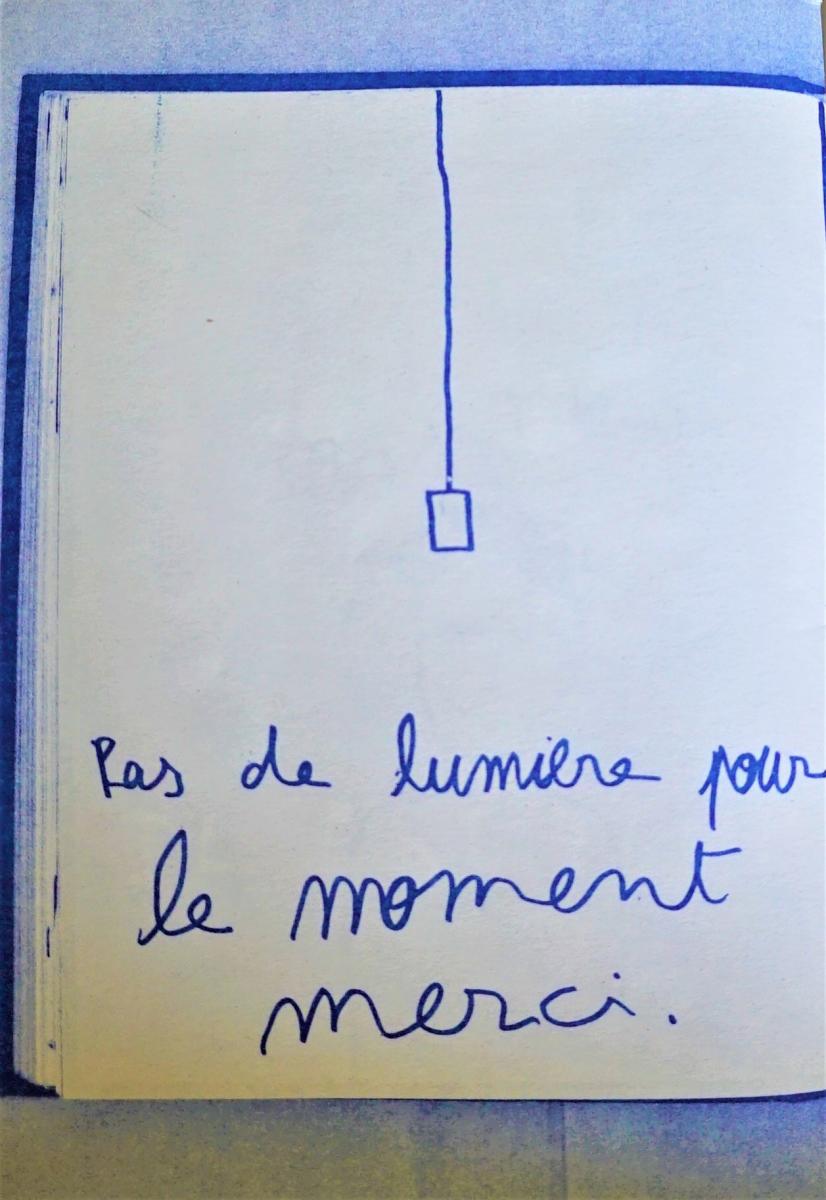 Pas de lumière pour
le moment
merci.